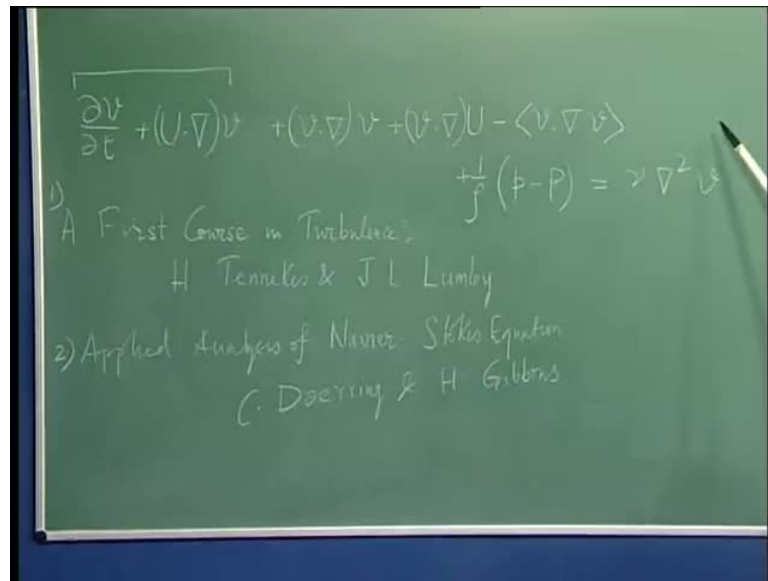 ∂v/∂t + (U.∇)v + (v.∇)v + (v.∇)U - <v.∇ v>
+ 1/ρ (p-P) = ν ∇² v
1)
A First Course in Turbulence:
H Tennekes & J L Lumley
2) Applied Analysis of Navier-Stokes Equation
C. Doering & H. Gibbons